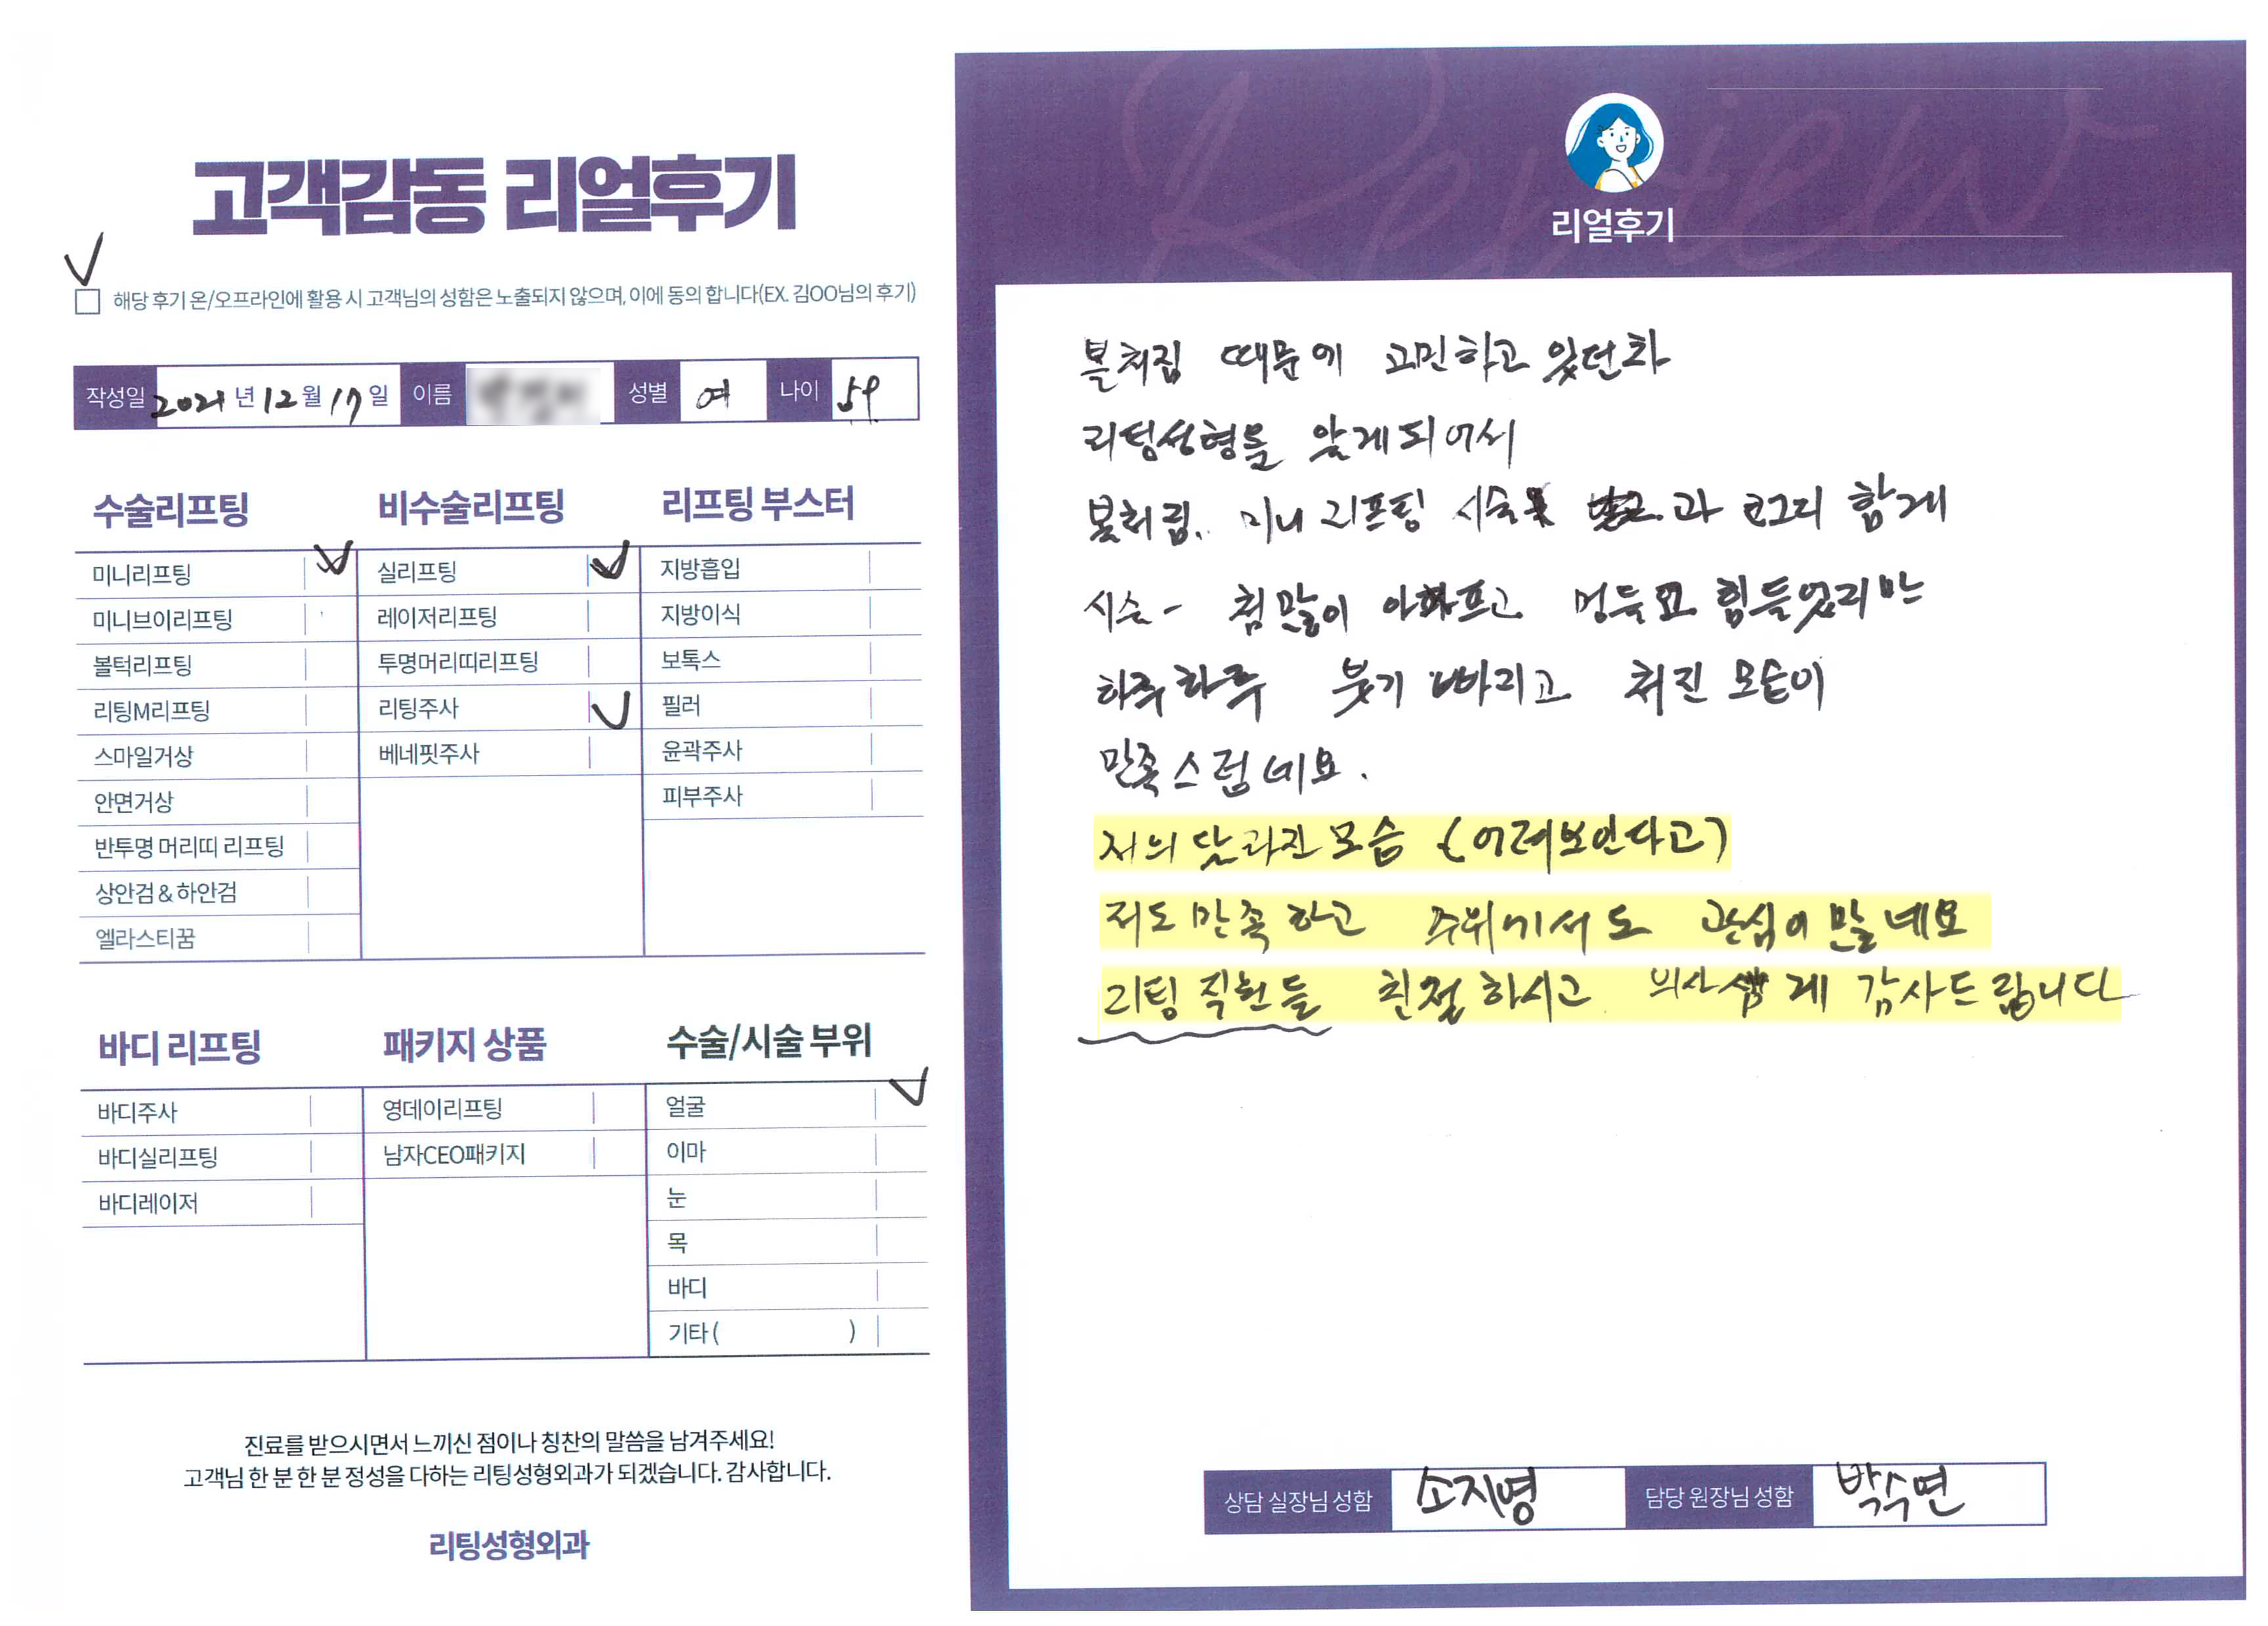 고객감동 리얼후기
해당 후기 온/오프라인에 활용 시 고객님의 성함은 노출되지 않으며, 이에 동의 합니다(EX. 김OO님의 후기)
작성일 2021년 12월 17일 이름 성별 여 나이 59
수술리프팅
미니리프팅
미니브이리프팅
볼턱리프팅
리팅M리프팅
스마일거상
안면거상
반투명 머리띠 리프팅
상안검 & 하안검
엘라스티꿈
비수술리프팅
실리프팅
레이저리프팅
투명머리띠리프팅
리팅주사
베네핏주사
리프팅 부스터
지방흡입
지방이식
보톡스
필러
윤곽주사
피부주사
바디 리프팅
바디주사
바디실리프팅
바디레이저
패키지 상품
영데이리프팅
남자CEO패키지
수술/시술 부위
얼굴
이마
눈
목
바디
기타 ( )
진료를 받으시면서 느끼신 점이나 칭찬의 말씀을 남겨주세요!
고객님 한 분 한 분 정성을 다하는 리팅성형외과가 되겠습니다. 감사합니다.
리팅성형외과
Review
리얼후기
볼처짐 때문에 고민하고 있던차
리팅성형을 알게되어서
미니 리프팅 시술 과 함게
시술- 첨 많이 아프고 멍들고 힘들었지만
하루하루 붓기 빠지고 처진 모습이
만족스럽네요.
저의 달라진모습 (어려보인다고)
저도 만족하고 주위에서도 관심이 많네요
리팅 직원들 친절하시고 의사쌤게 감사드립니다
상담 실장님 성함 소지영 담당 원장님 성함 박수연